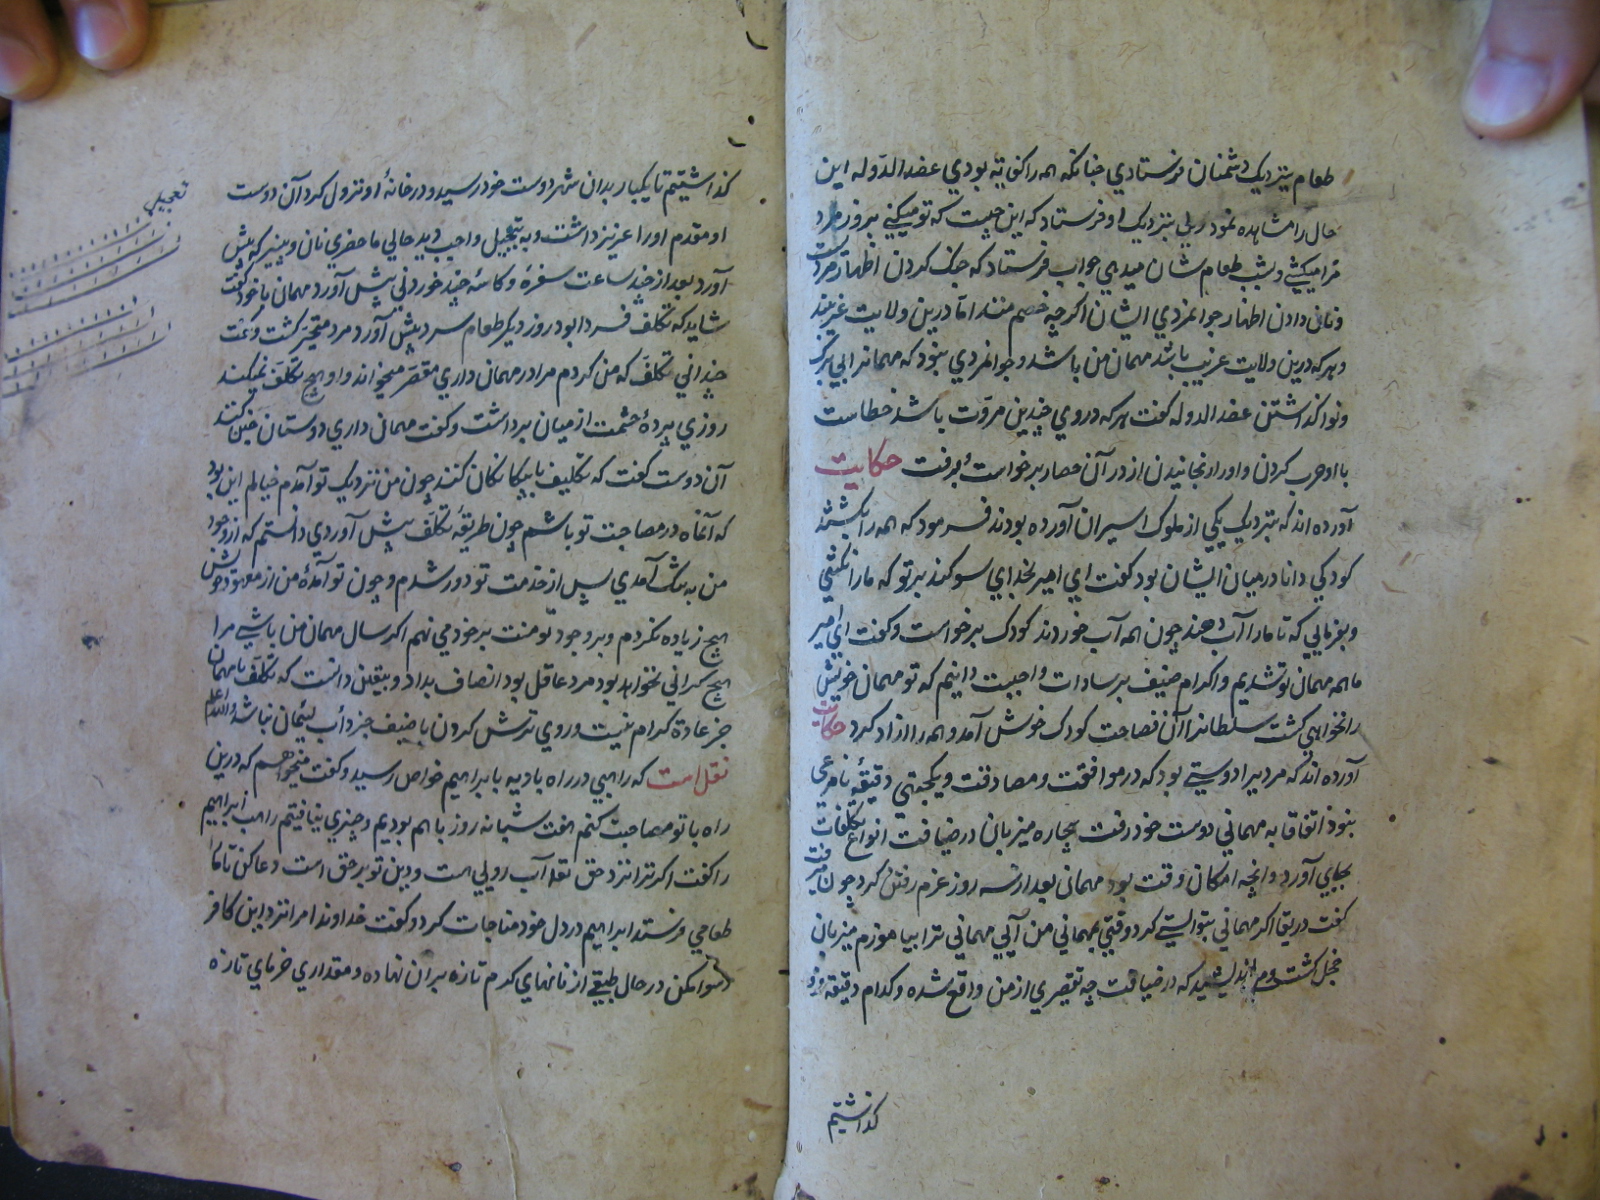 طعام بنزدیک دشمنان فرستادي چنانکه همه را کفویة بودي عضد الدوله این
حال را مشاهده نمود ریلي بنزدیک او فرستاد که این چیست که تو میکنی بروز مرد
مرا میکشی و شب طعام شان میدهي جواب فرستاد که جنک کردن اظهار مردیست
و نان دادن اظهار جوانمردي ایشان اکرچه خصم منند اما درین ولایت غریبند
و هرکه درین ولایت غریب باشد مهمان من باشد و جوانمردي نبود که مهمانرا بي برک
و نوا کذاشتن عضد الدوله کفت هرکه دروي چندین مروّت باشد خطاست
با او حرب کردن و اورا رنجانیدن از در آن حصار برخواست و برفت حکایت
آورده اند که بنزدیک یکي از ملوک اسیران آورده بودند فرمود که همه را بکشند
کودکي دانا درمیان ایشان بود کفت اي امیر بخداي سوکند بر تو که مارا نکشي
و بفرمایي که تا مارا آب دهند چون همه آب خوردند کودک برخواست و کفت اي امیر
ما همه مهمان تو شدیم و اکرام ضیف بر سادات واجبست دانیم که تو مهمان خویش
را نخواهي کشت سلطانرا از آن فصاحت کودک خوش آمد و همه را ازاد کرد حکایت
آورده اند که مردیرا دوستي بود که در موافقت و مصادقت و یکجهتي دقیقهٔ نامرعي
نبود اتفاقا به مهماني دوست خود رفت بیچاره میزبان در ضیافت انواع تکلفات
بجاي آورد و انچه امکان وقت بود مهماني بعد از سه روز عزم رفتن کرد چون میرفت
کفت دریغا اکر مهماني بتوانستي کرد وقتي بمهماني من آیي مهماني ترا بیاموزم میزبان
خجل کشت و مي اندیشید که در ضیافت چه تقصیري از من واقع شده و کدام دقیقه فرو
کذاشتیم
کذاشتیم تا یکبار بدان شهر دوست خود رسید و درخانهٔ او نزول کرد آن دوست
او مقدم اورا عزیز داشت و به تبجیل واجب دید حالي ماحضري نان و پنیر که پیش
آورد بعد از چند ساعت سفرهٔ و کاسهٔ چند خوردني پیش آورد مهمان با خود کفت
شاید که تکلف فردا بود روز دیکر طعام سرد پیش آورد مرد متحیّر کشت و کفت
چنداني تکلف که من کردم مرا در مهمان داري مقصّر میخواند و او هیچ تکلف نمیکند
روزي پردهٔ حشمت از میان برداشت و کفت مهماني داري دوستان چنین کنند
آن دوست کفت که تکلیف با بیکانکان کنند چون من نزدیک تو آمدم خیالم این بود
که آنماه در مصاحبت تو باشم چون طریقهٔ تکلّف پیش آوردي دانستم که از وجود
من به تنک آمدي پس از خدمت تو دور شدم و چون تو آمدهٔ من از معهود خویش
هیچ زیاده نکردم و بر وجود تو منت بر خود مي نهم اکر سال مهمان من باشي مرا
هیچ کراني نخواهد بود مرد عاقل بود انصاف بداد و بیقین دانست که تکلّف با مهمان
جز عادة کرام نیست و روي ترش کردن با ضیف جز دأب لئیمان نباشد والله اعلم
نقل است که راهبي در راه بادیه با ابراهیم خواص رسید و کفت میخواهم که درین
راه با تو مصاحبت کنم هفت شبانه روز باهم بودیم و چیزي نیافتیم راهب ابراهیم
را کفت اکر ترا نزد حق تعالي آب رویي هست و دین تو بر حق است دعا کن تا مارا
طعامي فرستد ابراهیم در دل خود مناجات کرد و کفت خداوندا مرا نزد این کافر
رسوا مکن در حال طبقي از نانهاي کرم تازه بران نهاده و مقداري خرماي تازه